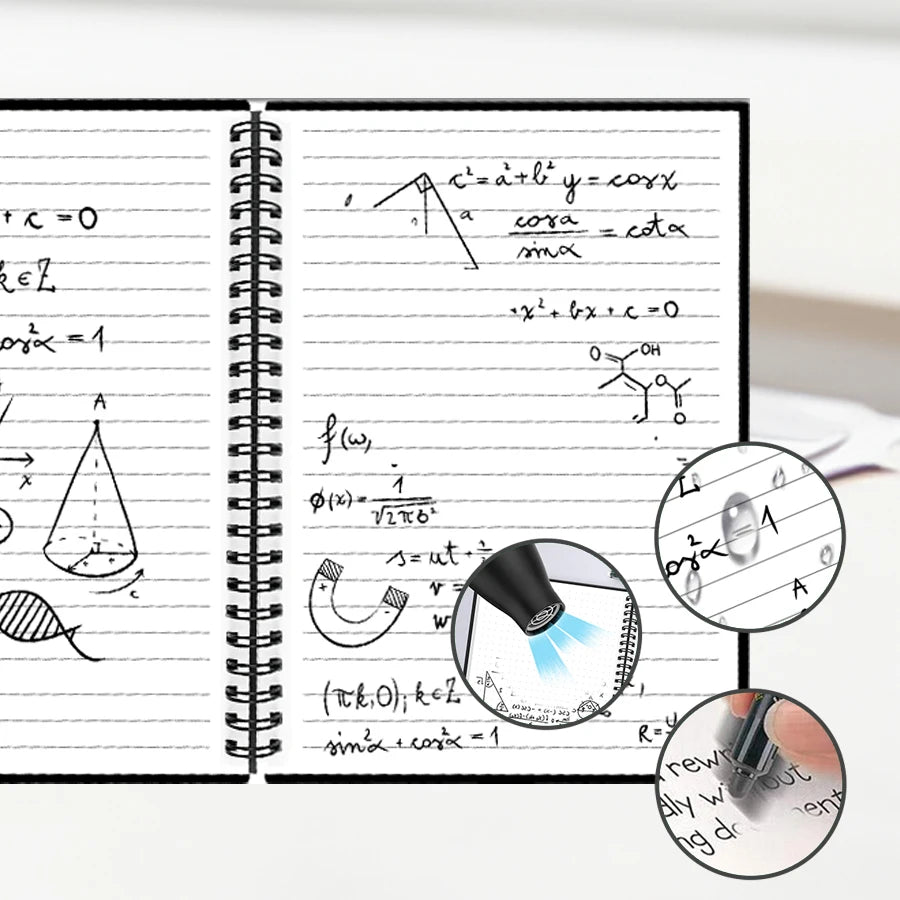 + c = 0
k∈Z
cos²α = 1
A
x
c
c² = a² + b² y = cosx
a
cosα / sinα = cotα
x² + bx + c = 0
O OH
O
O
f(ω,
ϕ(x) = 1 / √2πб²
s = ut +
v =
w
+ -
(πk,0); k∈Z
sin²α + cos²α = 1
R =
cos²α = 1
A
rewr
dly w out
ng d ent